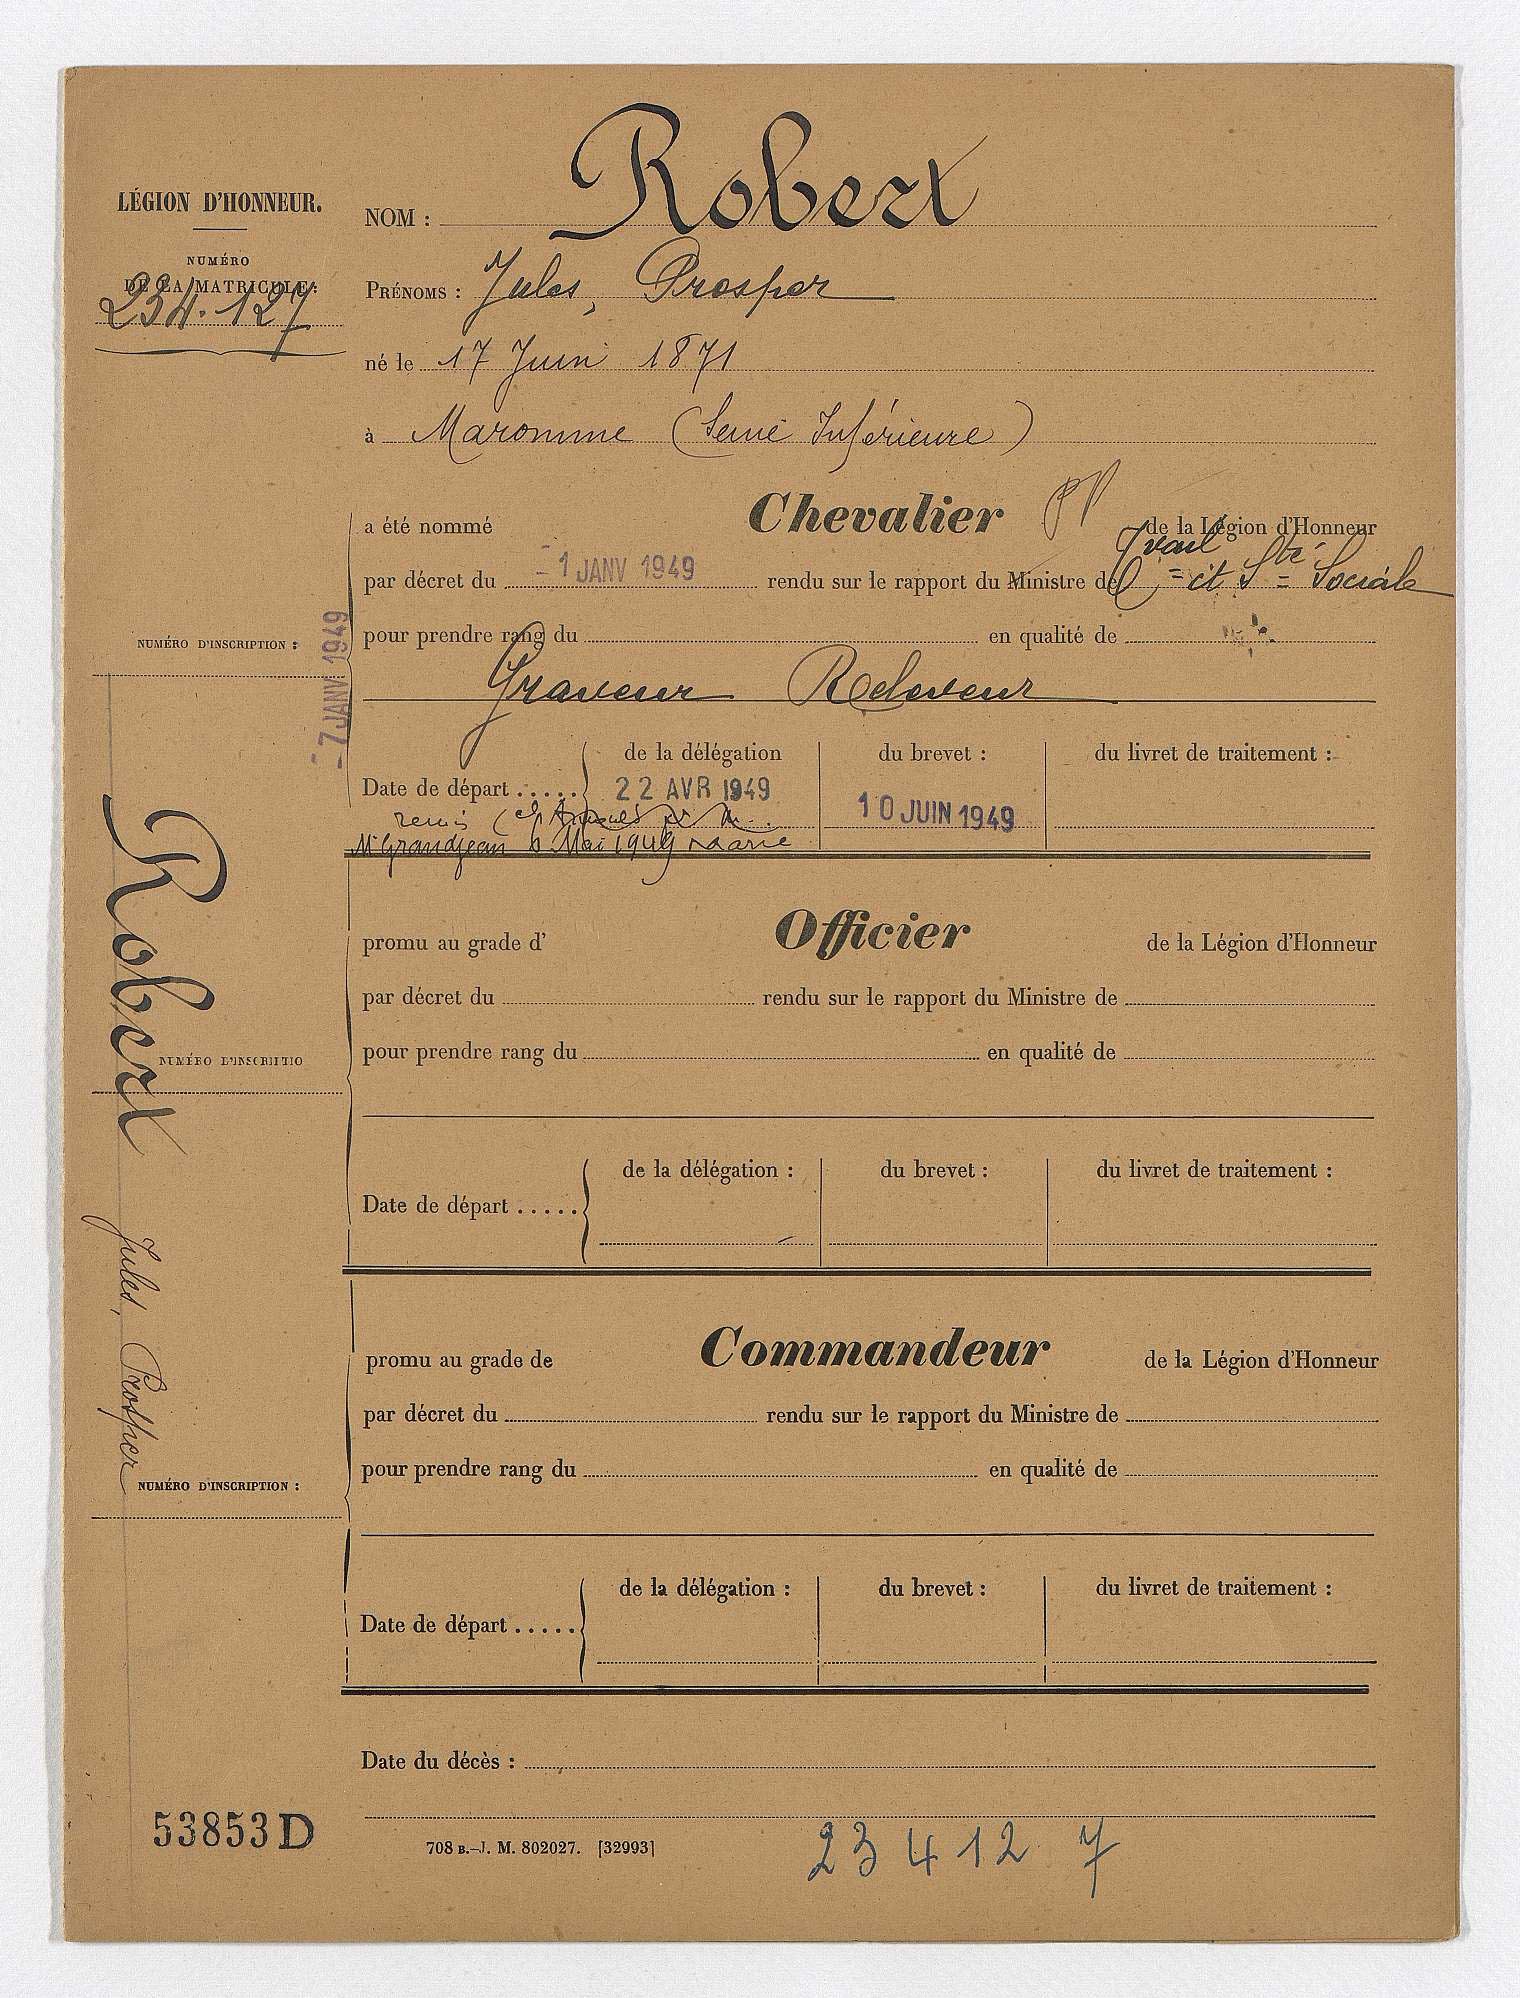 LÉGION D'HONNEUR.
NUMÉRO
DE LA MATRICULE :
234.127
NOM : Robert
PRÉNOMS : Jules, Prosper
né le 17 Juin 1871
à Maromme (Seine Inférieure)
a été nommé Chevalier de la Légion d'Honneur
par décret du -1 JANV 1949 rendu sur le rapport du Ministre de Travail et Sté Sociale
NUMÉRO D'INSCRIPTION :
-7 JANV 1949
pour prendre rang du en qualité de
Graveur Releveur
de la délégation du brevet : du livret de traitement :
Date de départ ..... 22 AVR 1949 10 JUIN 1949
remis
Mr Grandjean 6 Mai 1949
Robert Jules, Prosper
promu au grade d' Officier de la Légion d'Honneur
par décret du rendu sur le rapport du Ministre de
pour prendre rang du en qualité de
NUMÉRO D'INSCRIPTIO
de la délégation : du brevet : du livret de traitement :
Date de départ .....
promu au grade de Commandeur de la Légion d'Honneur
par décret du rendu sur le rapport du Ministre de
pour prendre rang du en qualité de
NUMÉRO D'INSCRIPTION :
de la délégation : du brevet : du livret de traitement :
Date de départ .....
Date du décès :
53853 D
708 B.-J. M. 802027. [32993]
234127